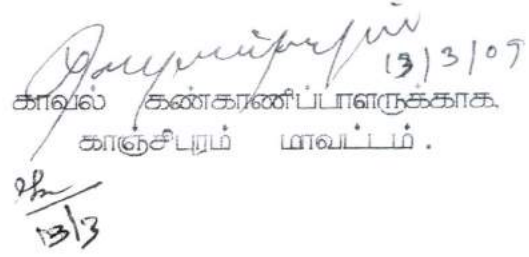 13/3/09
காவல் கண்காணிப்பாளருக்காக.
காஞ்சிபுரம் மாவட்டம் .
13/3